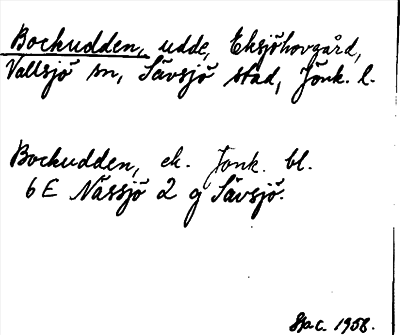 Bockudden, udde, Eksjöhovgård,
Vallsjö sn, Sävsjö stad, Jönk. l.
Bockudden, ek. Jönk. bl.
6 E Nässjö 2 g Sävsjö.
1958.